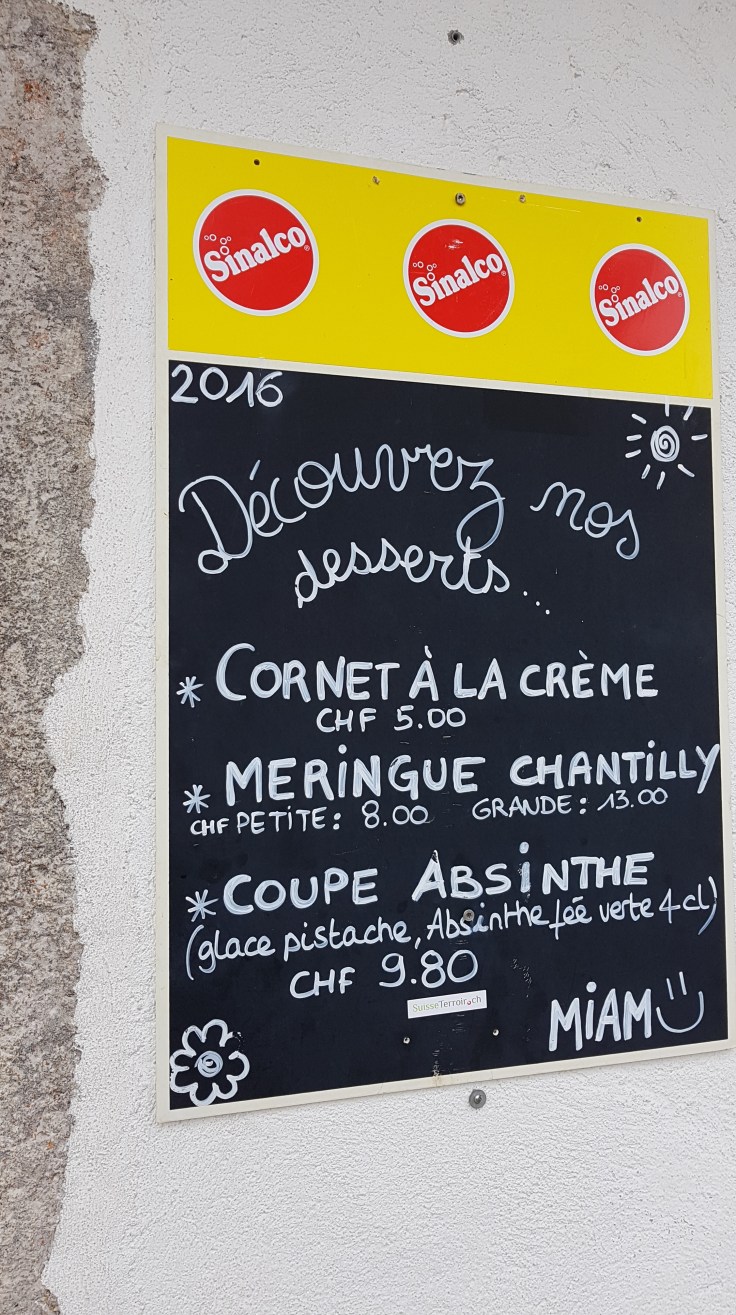 Sinalco Sinalco Sinalco
2016
Découvrez nos
desserts...
* CORNET À LA CRÈME
CHF 5.00
* MERINGUE CHANTILLY
CHF PETITE: 8.00 GRANDE: 13.00
* COUPE ABSINTHE
(glace pistache, Absinthe fée verte 4 cl)
CHF 9.80
SuisseTerroir.ch
MIAM